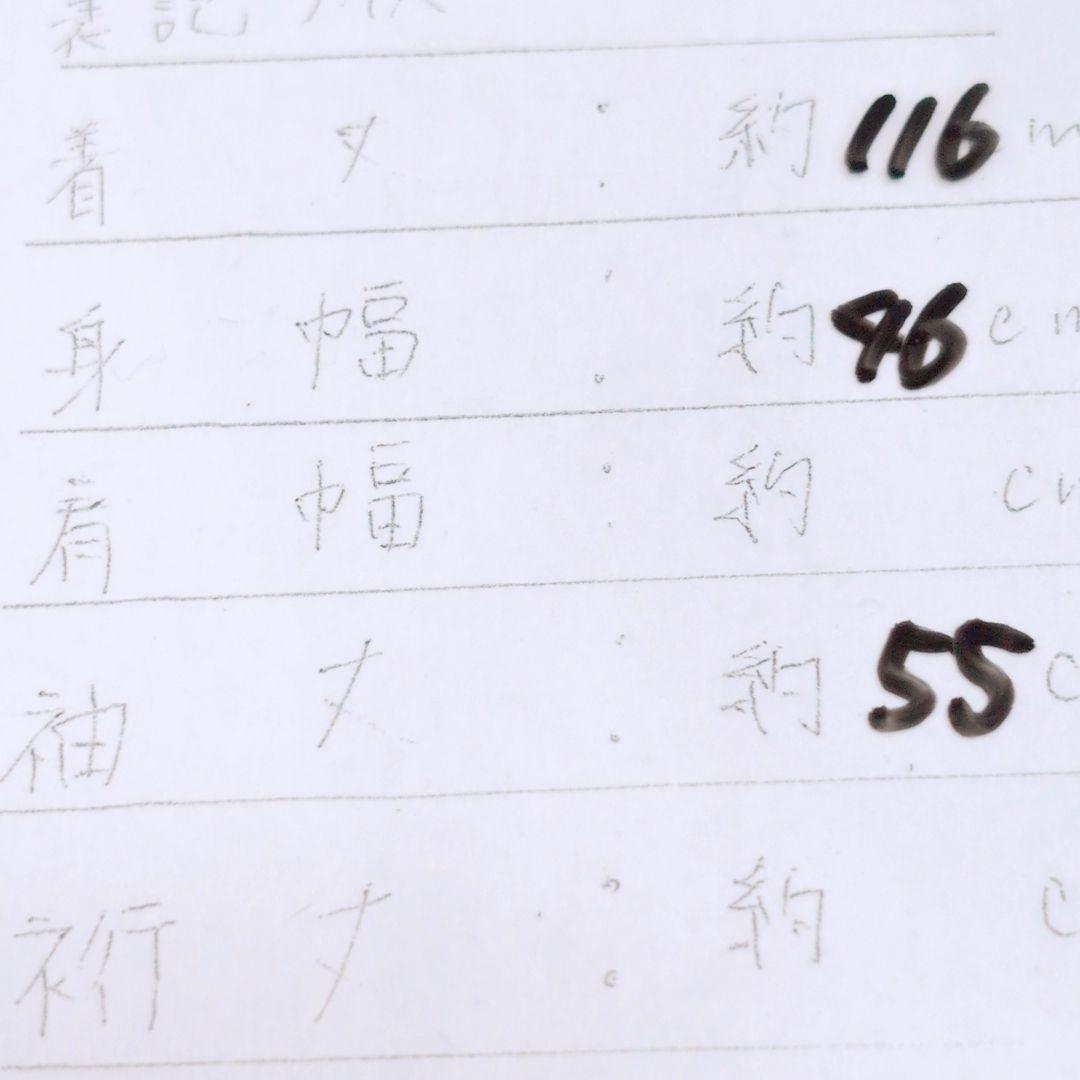 着 丈 : 約 116 m
身 幅 : 約 46 c m
肩 幅 : 約 cm
袖 丈 : 約 55 c
裄 丈 : 約 c